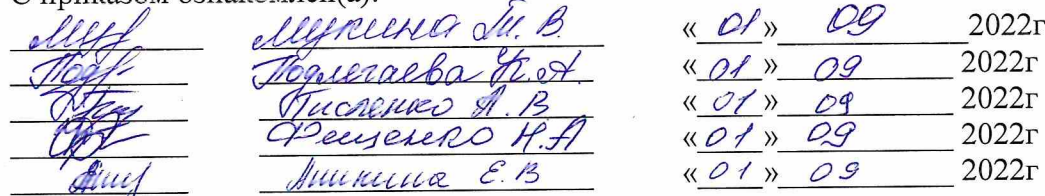 С приказом ознакомлен(а):
Мукина Т. В. «01» 09 2022г
Подлегаева К. А. «01» 09 2022г
Писленко А. В «01» 09 2022г
Фещенко Н. А «01» 09 2022г
Аникина Е. В «01» 09 2022г